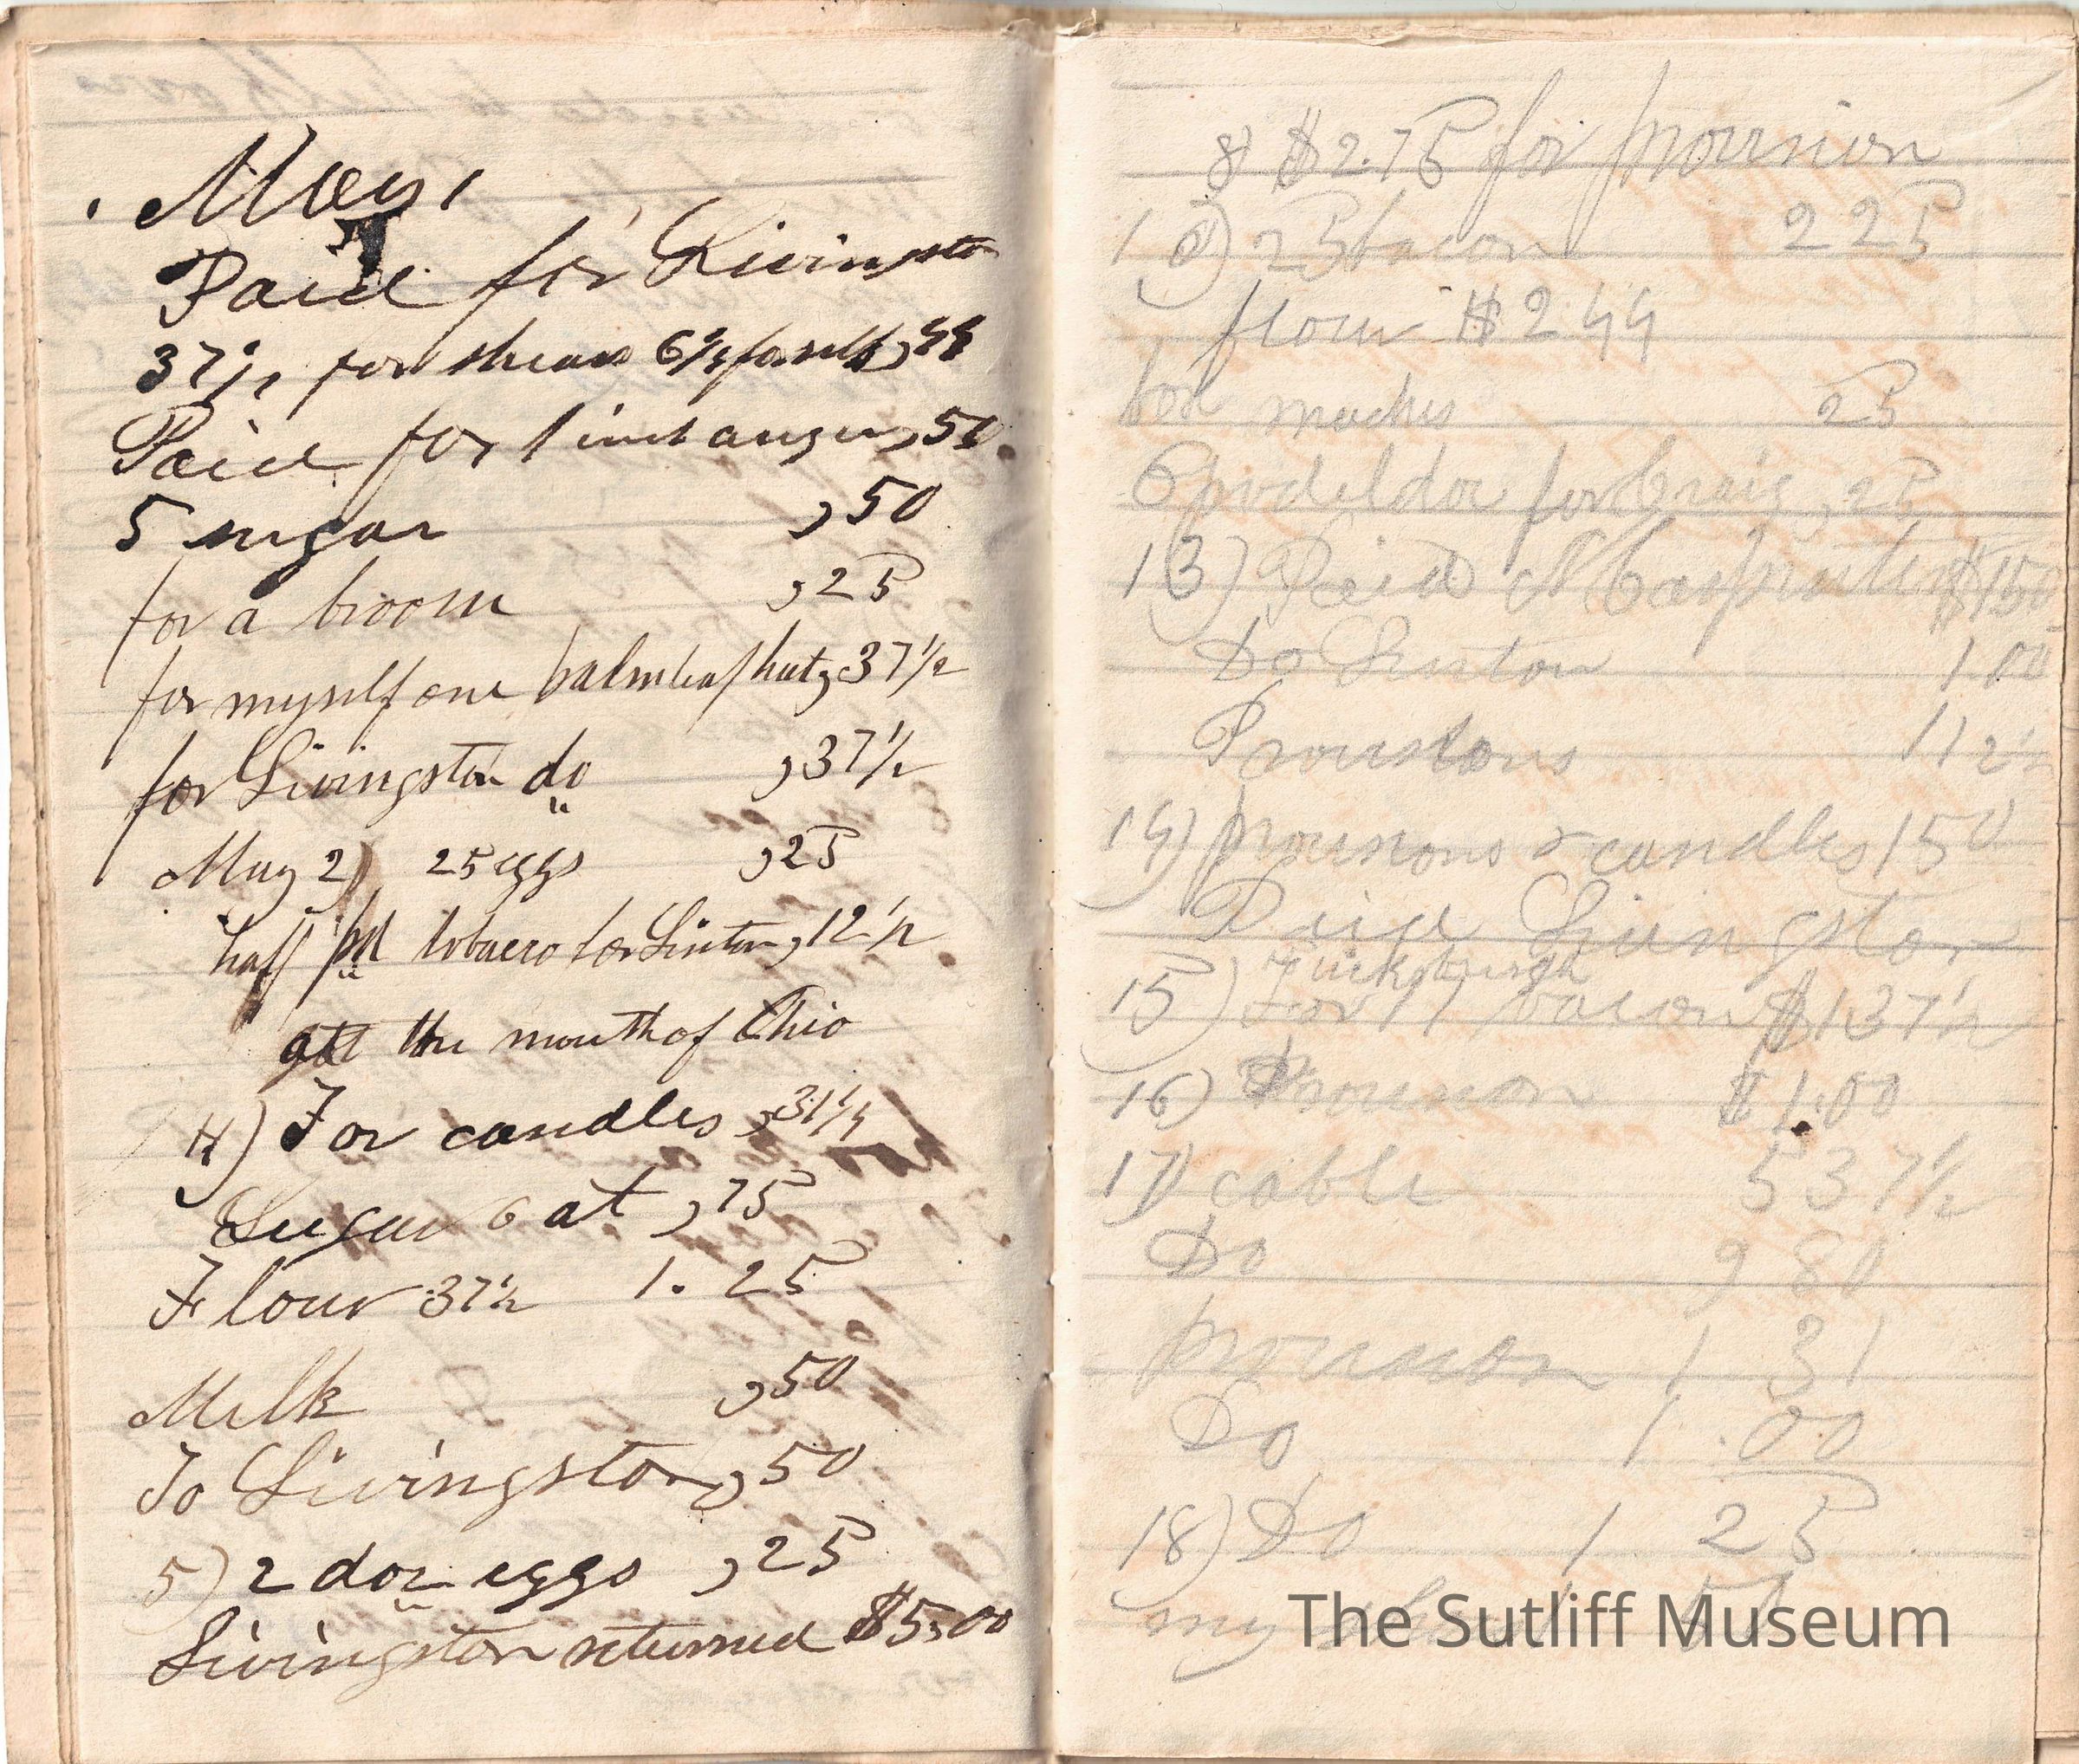 May 1
Paid for Livingston
37 1/2 for shears 6 1/4 for self ,44
Paid for 1 inch auger ,50
5 sugar ,50
for a broom ,25
for myself one palmleaf hat ,37 1/2
for Livingston do ,37 1/2
May 2) 25 eggs ,25
half pd tobacco for Linton ,12 1/2
at the mouth of Ohio
4) For candles ,31 1/4
Sugar 6 at ,75
Flour 37 1/2 1.25
Milk ,50
To Livingston ,50
5) 2 doz eggs ,25
Livingston returned $5,00
8) $2.75 for provision
10) 25 bacon 2 25
flour $2 44
box maches 25
Opodeldoc for Craig ,25
13) Paid Carpenter $150
Do Linton 1.00
Provisions 1 12 1/2
14) provisions & candles 150
Paid Livingston
Vicksburgh
15) For 11 bacon $137 1/2
16) Provision $1.00
17) cable 5 37 1/2
Do 9 80
provision 1 31
Do 1.00
18) Do 1 25
my
The Sutliff Museum